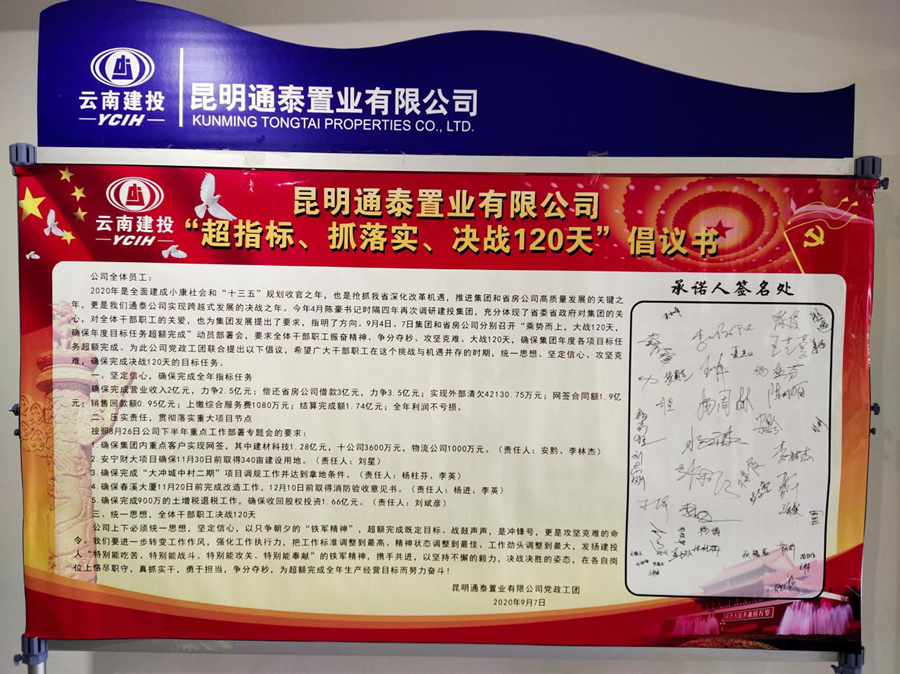 云南建投
YCIH
昆明通泰置业有限公司
KUNMING TONGTAI PROPERTIES CO., LTD.
云南建投
YCIH
昆明通泰置业有限公司
“超指标、抓落实、决战120天”倡议书
公司全体员工：
2020年是全面建成小康社会和“十三五”规划收官之年，也是抢抓我省深化改革机遇，推进集团和省房公司高质量发展的关键之
年，更是我们通泰公司实现跨越式发展的决战之年。今年4月陈豪书记时隔四年再次调研建投集团，充分体现了省委省政府对集团的关
心，对全体干部职工的关爱，也为集团发展提出了要求，指明了方向。9月4日、7日集团和省房公司分别召开“乘势而上，大战120天，
确保年度目标任务超额完成”动员部署会，要求全体干部职工振奋精神、争分夺秒、攻坚克难，大战120天，确保集团年度各项目标任
务超额完成。为此公司党政工团联合提出以下倡议，希望广大干部职工在这个挑战与机遇并存的时期，统一思想、坚定信心，攻坚克
难，确保完成决战120天的目标任务。
一、坚定信心，确保完成全年指标任务
确保完成营业收入2亿元，力争2.5亿元；偿还省房公司借款3亿元，力争3.5亿元；实现外部清欠42130.75万元；网签合同额1.9亿
元；销售回款额0.95亿元；上缴综合服务费1080万元；结算完成额1.74亿元；全年利润不亏损。
二、压实责任，贯彻落实重大项目节点
按照8月26日公司下半年重点工作部署专题会的要求：
1.确保集团内重点客户实现网签，其中建材科技1.28亿元，十公司3600万元，物流公司1000万元。（责任人：安黔、李林杰）
2.安宁财大项目确保11月30日前取得340亩建设用地。（责任人：刘星）
3.确保完成“大冲城中村二期”项目调规工作并达到拿地条件。（责任人：杨柱芬、李英）
4.确保春溪大厦11月20日前完成改造工作，12月10日前取得消防验收意见书。（责任人：杨进、李英）
5.确保完成900万的土增税退税工作，确保收回股权投资1.66亿元。（责任人：刘斌彦）
三、统一思想，全体干部职工决战120天
公司上下必须统一思想，坚定信心，以只争朝夕的“铁军精神”，超额完成既定目标。战鼓声声，是冲锋号，更是攻坚克难的命
令。我们要进一步转变工作作风，强化工作执行力，把工作标准调整到最高，精神状态调整到最佳、工作劲头调整到最大，发扬建投
人“特别能吃苦、特别能战斗、特别能攻关、特别能奉献”的铁军精神，携手共进，以坚持不懈的毅力，决战决胜的姿态，在各自岗
位上恪尽职守，真抓实干，勇于担当，争分夺秒，为超额完成全年生产经营目标而努力奋斗！
昆明通泰置业有限公司党政工团
2020年9月7日
承诺人签名处